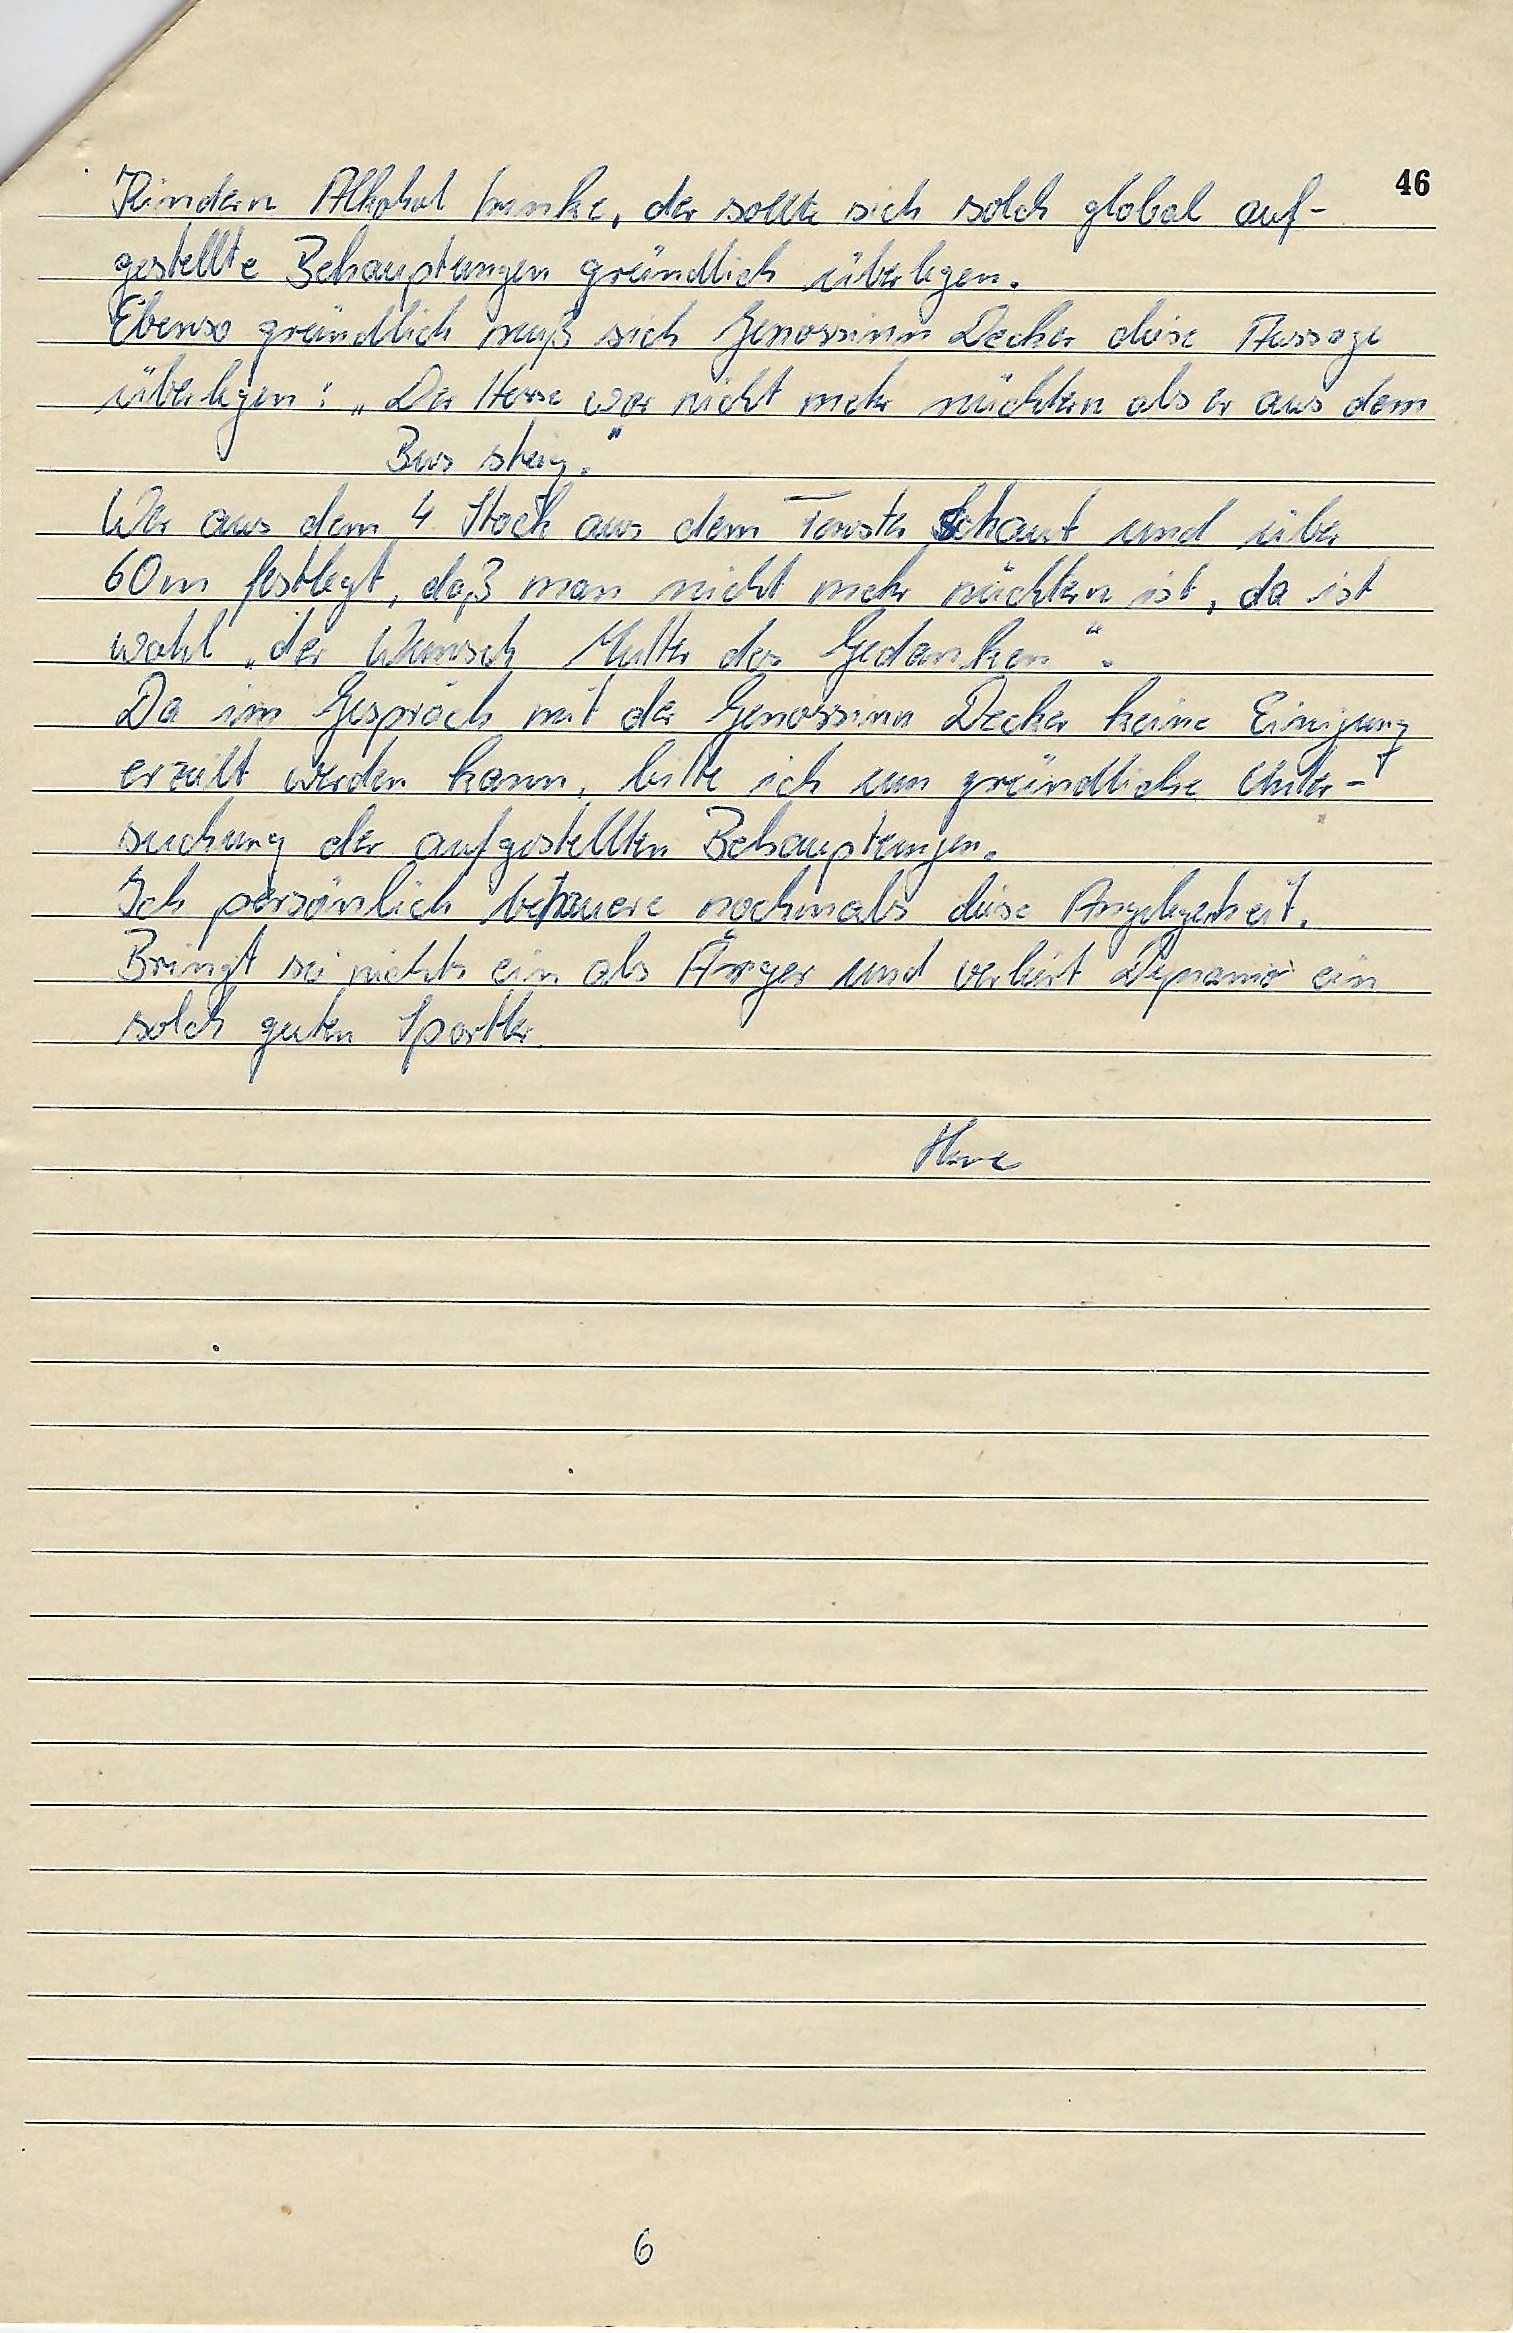 46
Kindern Alkohol trinke, der sollte sich solch global auf-
gestellte Behauptungen gründlich überlegen.
Ebenso gründlich muß sich Genossinn Decker diese Aussage
überlegen: „Der Hesse war nicht mehr nüchtern als er aus dem
Bus stieg."
Wer aus dem 4 Stock aus dem Fenster Schaut und über
60m festlegt, daß man nicht mehr nüchtern ist, da ist
wohl „der Wunsch Mutter des Gedanken".
Da im Gespräch mit der Genossinn Decker keine Einigung
erzielt werden kann, bitte ich um gründliche Unter-
suchung der aufgestellten Behauptungen.
Ich persönlich betrauere nochmals diese Angelegenheit.
Bringt sie nichts ein als Ärger und verliert Dynamo ein
solch guten Sportler.
6